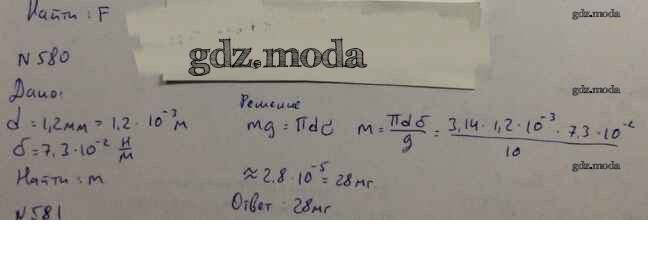 Найти: F
gdz.moda
N 580
gdz.moda
Дано:
d = 1,2 мм = 1,2 · 10⁻³ м
σ = 7,3 · 10⁻² Н/м
Найти: m
Решение
mg = πdσ m = πdσ/g = 3,14 · 1,2 · 10⁻³ · 7,3 · 10⁻²/10
gdz.moda
gdz.moda
≈ 2,8 · 10⁻⁵ = 28 мг.
Ответ: 28 мг
N 581